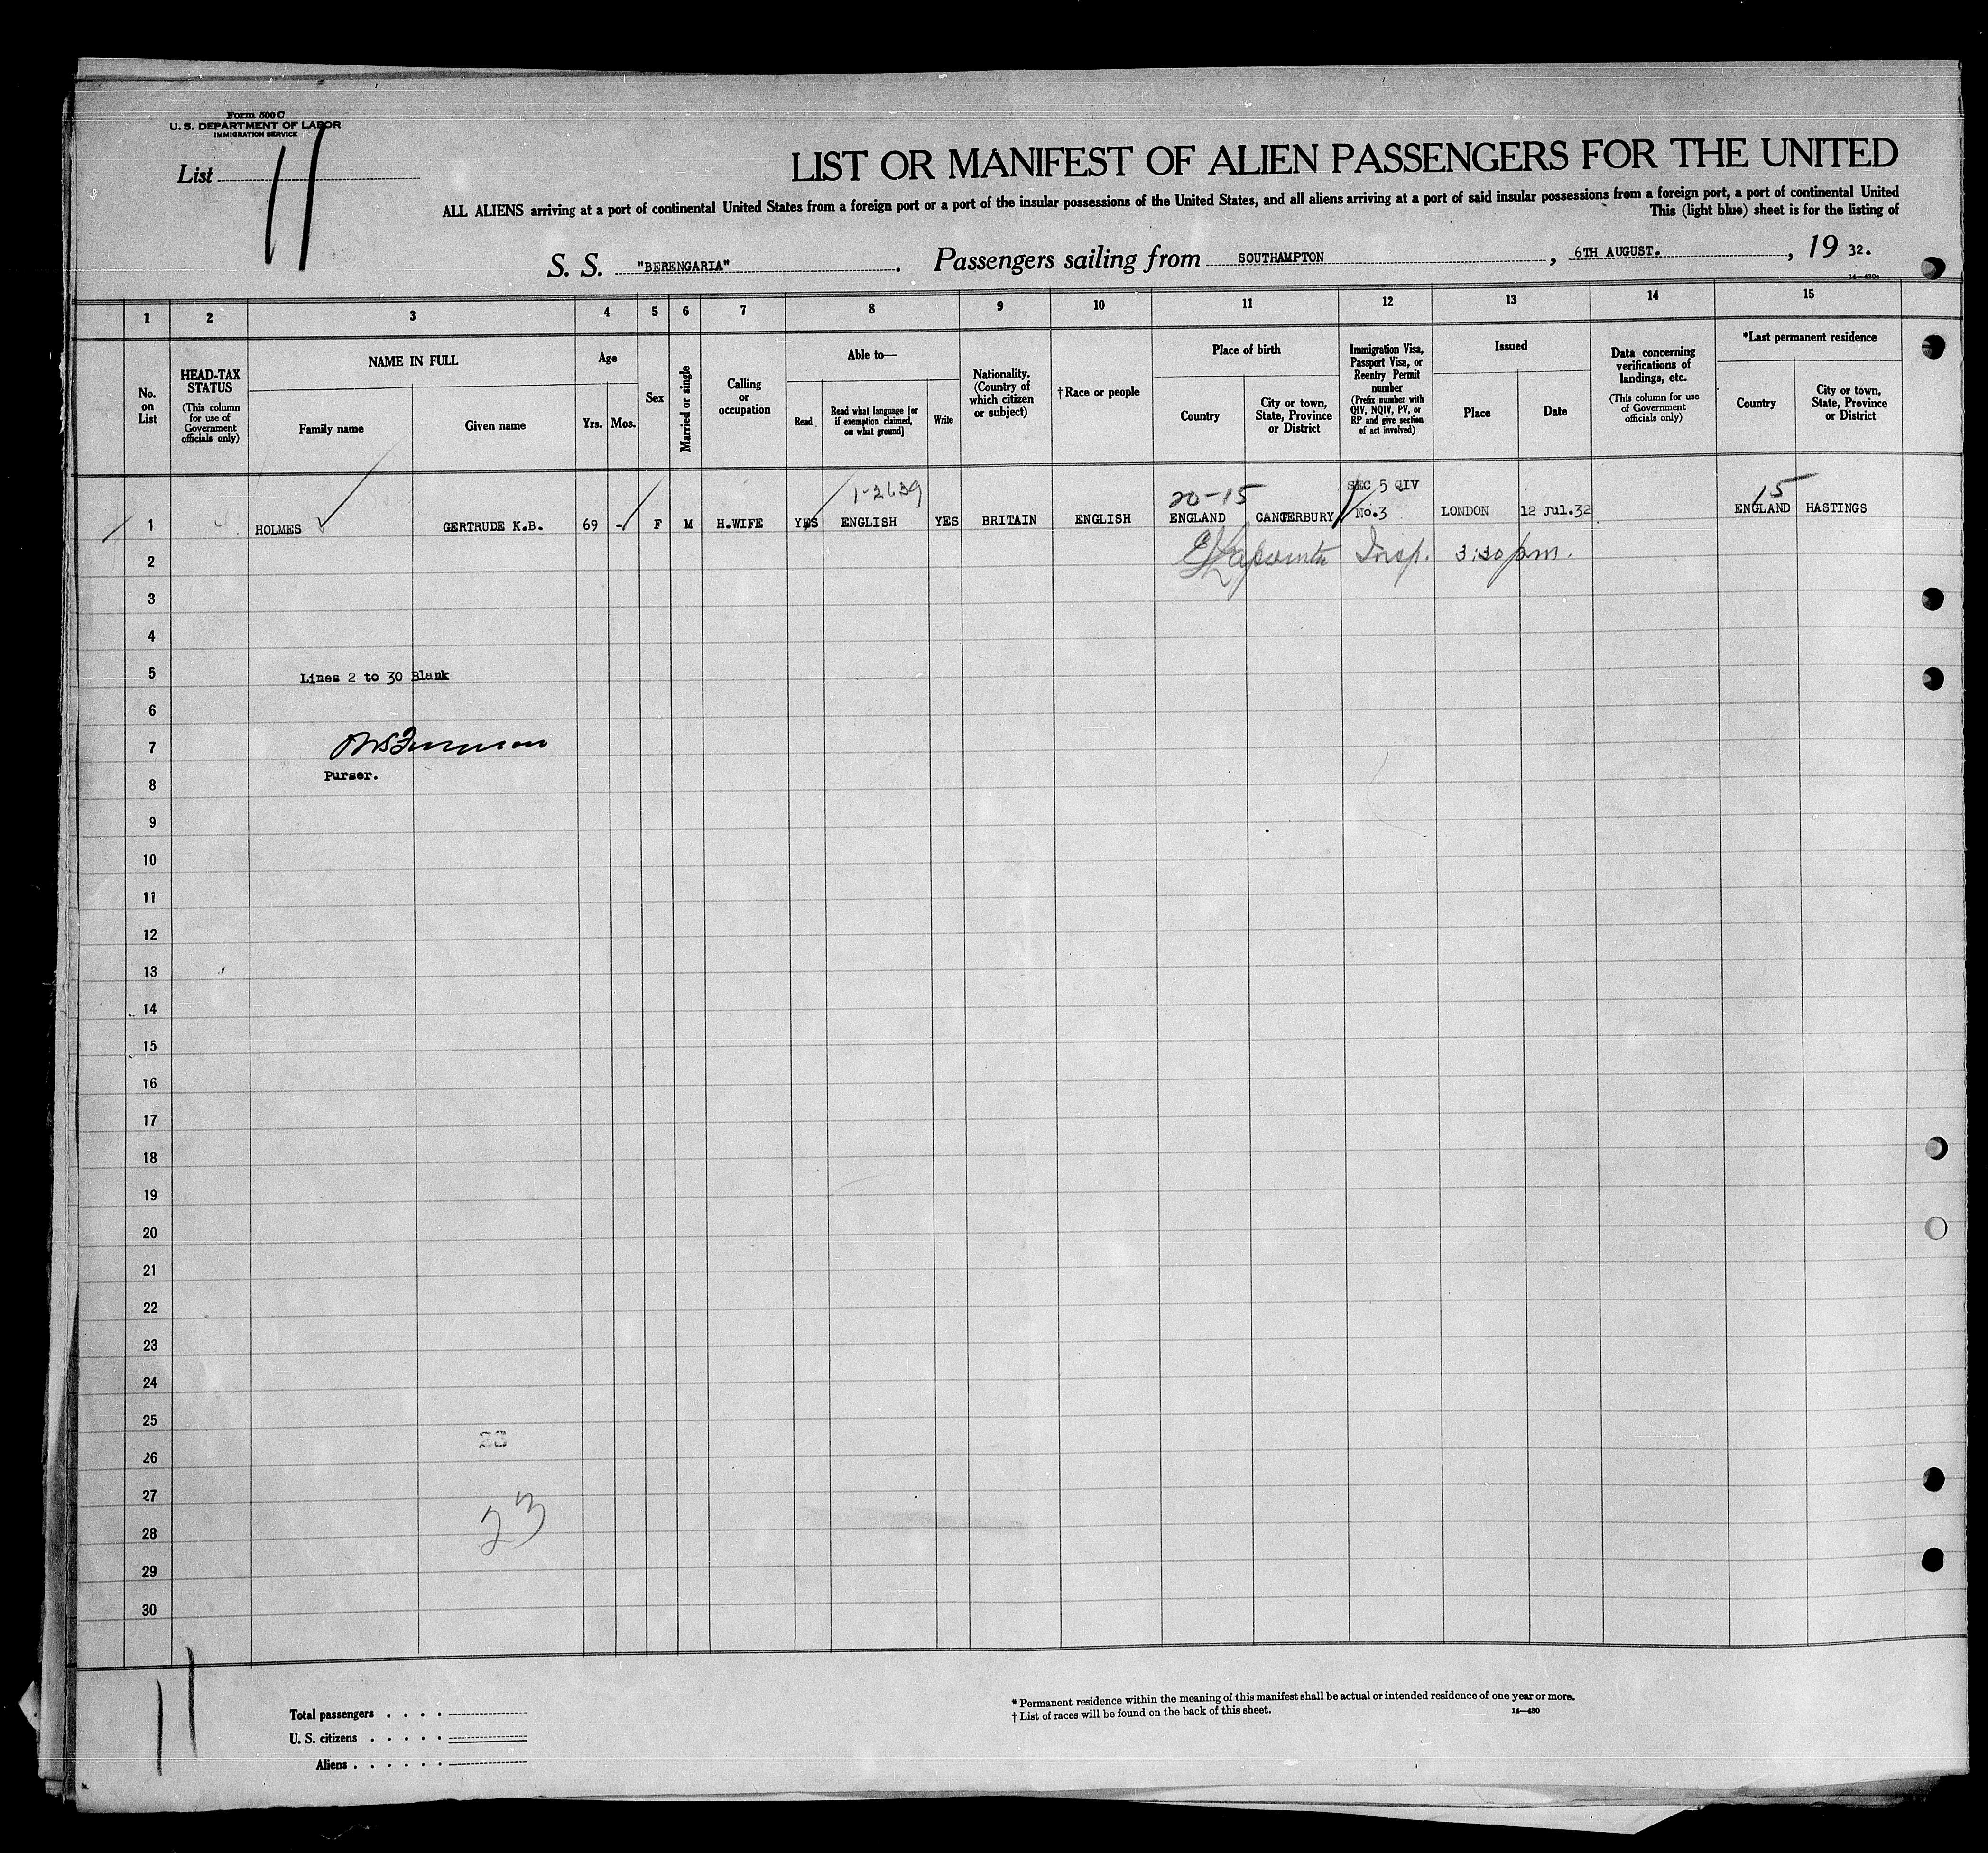 Form 500 C
U. S. DEPARTMENT OF LABOR
IMMIGRATION SERVICE
List 11
LIST OR MANIFEST OF ALIEN PASSENGERS FOR THE UNITED
ALL ALIENS arriving at a port of continental United States from a foreign port or a port of the insular possessions of the United States, and all aliens arriving at a port of said insular possessions from a foreign port, a port of continental United
This (light blue) sheet is for the listing of
S. S. "BERENGARIA". Passengers sailing from SOUTHAMPTON, 6TH AUGUST., 19 32.
1 2 3 4 5 6 7 8 9 10 11 12 13 14 15
No. on List
HEAD-TAX STATUS
(This column for use of Government officials only)
NAME IN FULL
Family name
Given name
Age
Yrs. Mos.
Sex
Married or single
Calling or occupation
Able to—
Read
Read what language [or if exemption claimed, on what ground]
Write
Nationality. (Country of which citizen or subject)
†Race or people
Place of birth
Country
City or town, State, Province or District
Immigration Visa, Passport Visa, or Reentry Permit number
(Prefix number with QIV, NQIV, PV, or RP and give section of act involved)
Issued
Place
Date
Data concerning verifications of landings, etc.
(This column for use of Government officials only)
*Last permanent residence
Country
City or town, State, Province or District
1-2639
20-15
SEC 5 QIV
15
1 HOLMES GERTRUDE K.B. 69 - F M H.WIFE YES ENGLISH YES BRITAIN ENGLISH ENGLAND CANTERBURY No.3 LONDON 12 Jul.32 ENGLAND HASTINGS
2 Insp. 3:30 pm.
3
4
5 Lines 2 to 30 Blank
6
7
Purser.
8
9
10
11
12
13
14
15
16
17
18
19
20
21
22
23
24
25
23
26
27
23
28
29
30
11
Total passengers
U. S. citizens
Aliens
* Permanent residence within the meaning of this manifest shall be actual or intended residence of one year or more.
† List of races will be found on the back of this sheet.
14—430